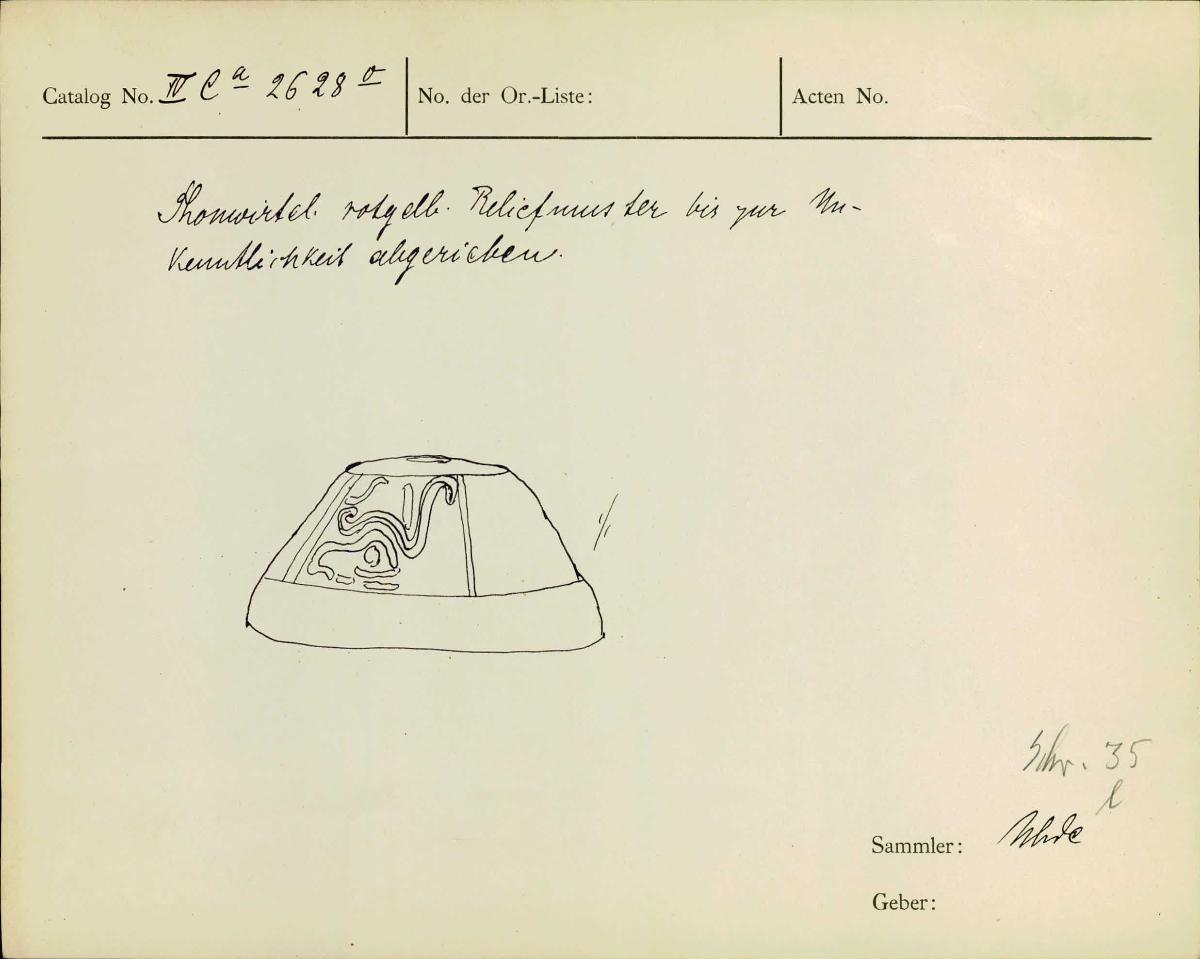 Catalog No. IV Ca 2628 o
No. der Or.-Liste:
Acten No.
Thonwirtel. rotgelb. Reliefmuster bis zur Un-
kenntlichkeit abgerieben.
1/1
Schr. 35
l
Sammler: Uhde
Geber: